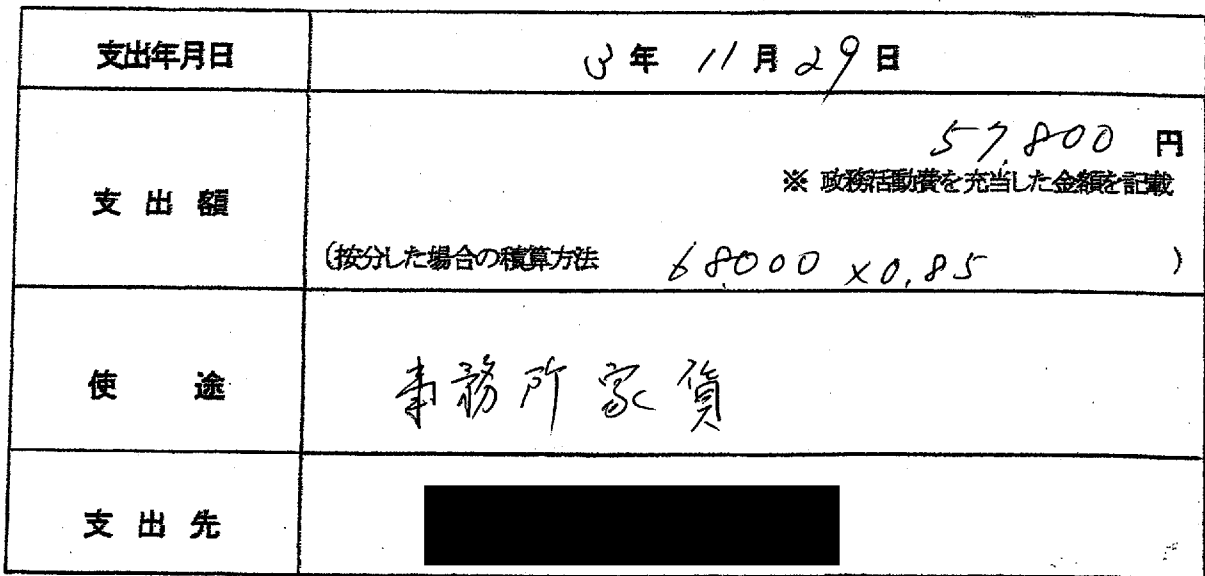 支出年月日 3年 11月29日
57,800 円
※ 政務活動費を充当した金額を記載
支出額
(按分した場合の積算方法 68,000 ×0.85 )
使途 事務所家賃
支出先